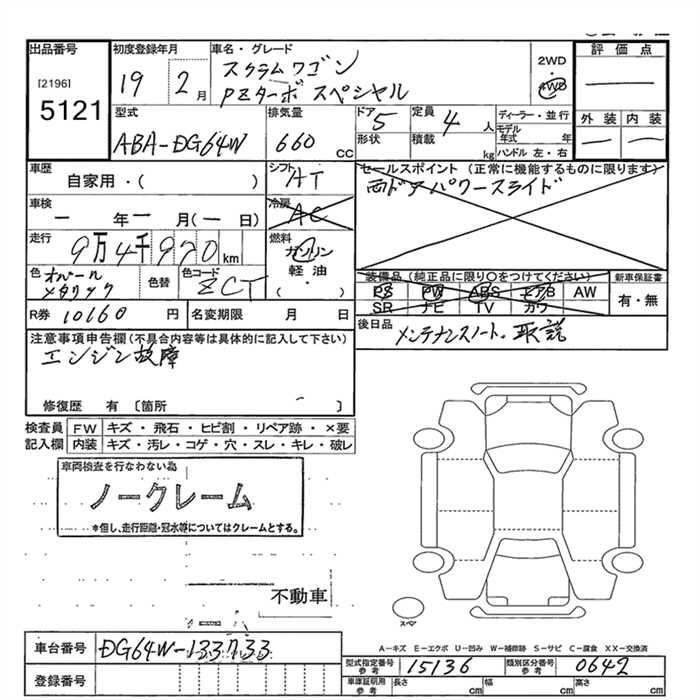 出品番号 初度登録年月 車名・グレード 2WD 評価点
[2196] 19 2月 スクラムワゴン 4WD
5121 PZターボ スペシャル
型式 排気量 ドア 5 定員 4人 ディーラー・並行 外装 内装
ABA-DG64W 660 CC 形状 積載 kg モデル年式 年
ハンドル 左・右
車歴 シフト AT セールスポイント (正常に機能するものに限ります)
自家用・( ) 両ドアパワースライド
車検 冷房 AC
ー 年 ー 月(ー 日)
走行 燃料
9万4千920km ガソリン
軽油
( )
色 パールメタリック 色替 色コード ZCT
装備品 (純正品に限り○をつけてください) 新車保証書
PS PW ABS エアB AW 有・無
SR ナビ TV カワ
R券 10160 円 名変期限 月 日
後日品 メンテナンスノート・取説
注意事項申告欄(不具合内容等は具体的に記入して下さい)
エンジン故障
修復歴 有 〔箇所 〕
検査員 FW キズ・飛石・ヒビ割・リペア跡・×要
記入欄 内装 キズ・汚レ・コゲ・穴・スレ・キレ・破レ
車両検査を行なわない為
ノークレーム
*但し、走行距離・冠水等についてはクレームとする。
不動車
スペア
A-キズ E-エクボ U-凹み W-補修跡 S-サビ C-腐食 XX-交換済
車台番号 DG64W-133733
型式指定番号 参考 15136 類別区分番号 参考 0642
登録番号
車庫証明用 参考 長さ cm 幅 cm 高さ cm